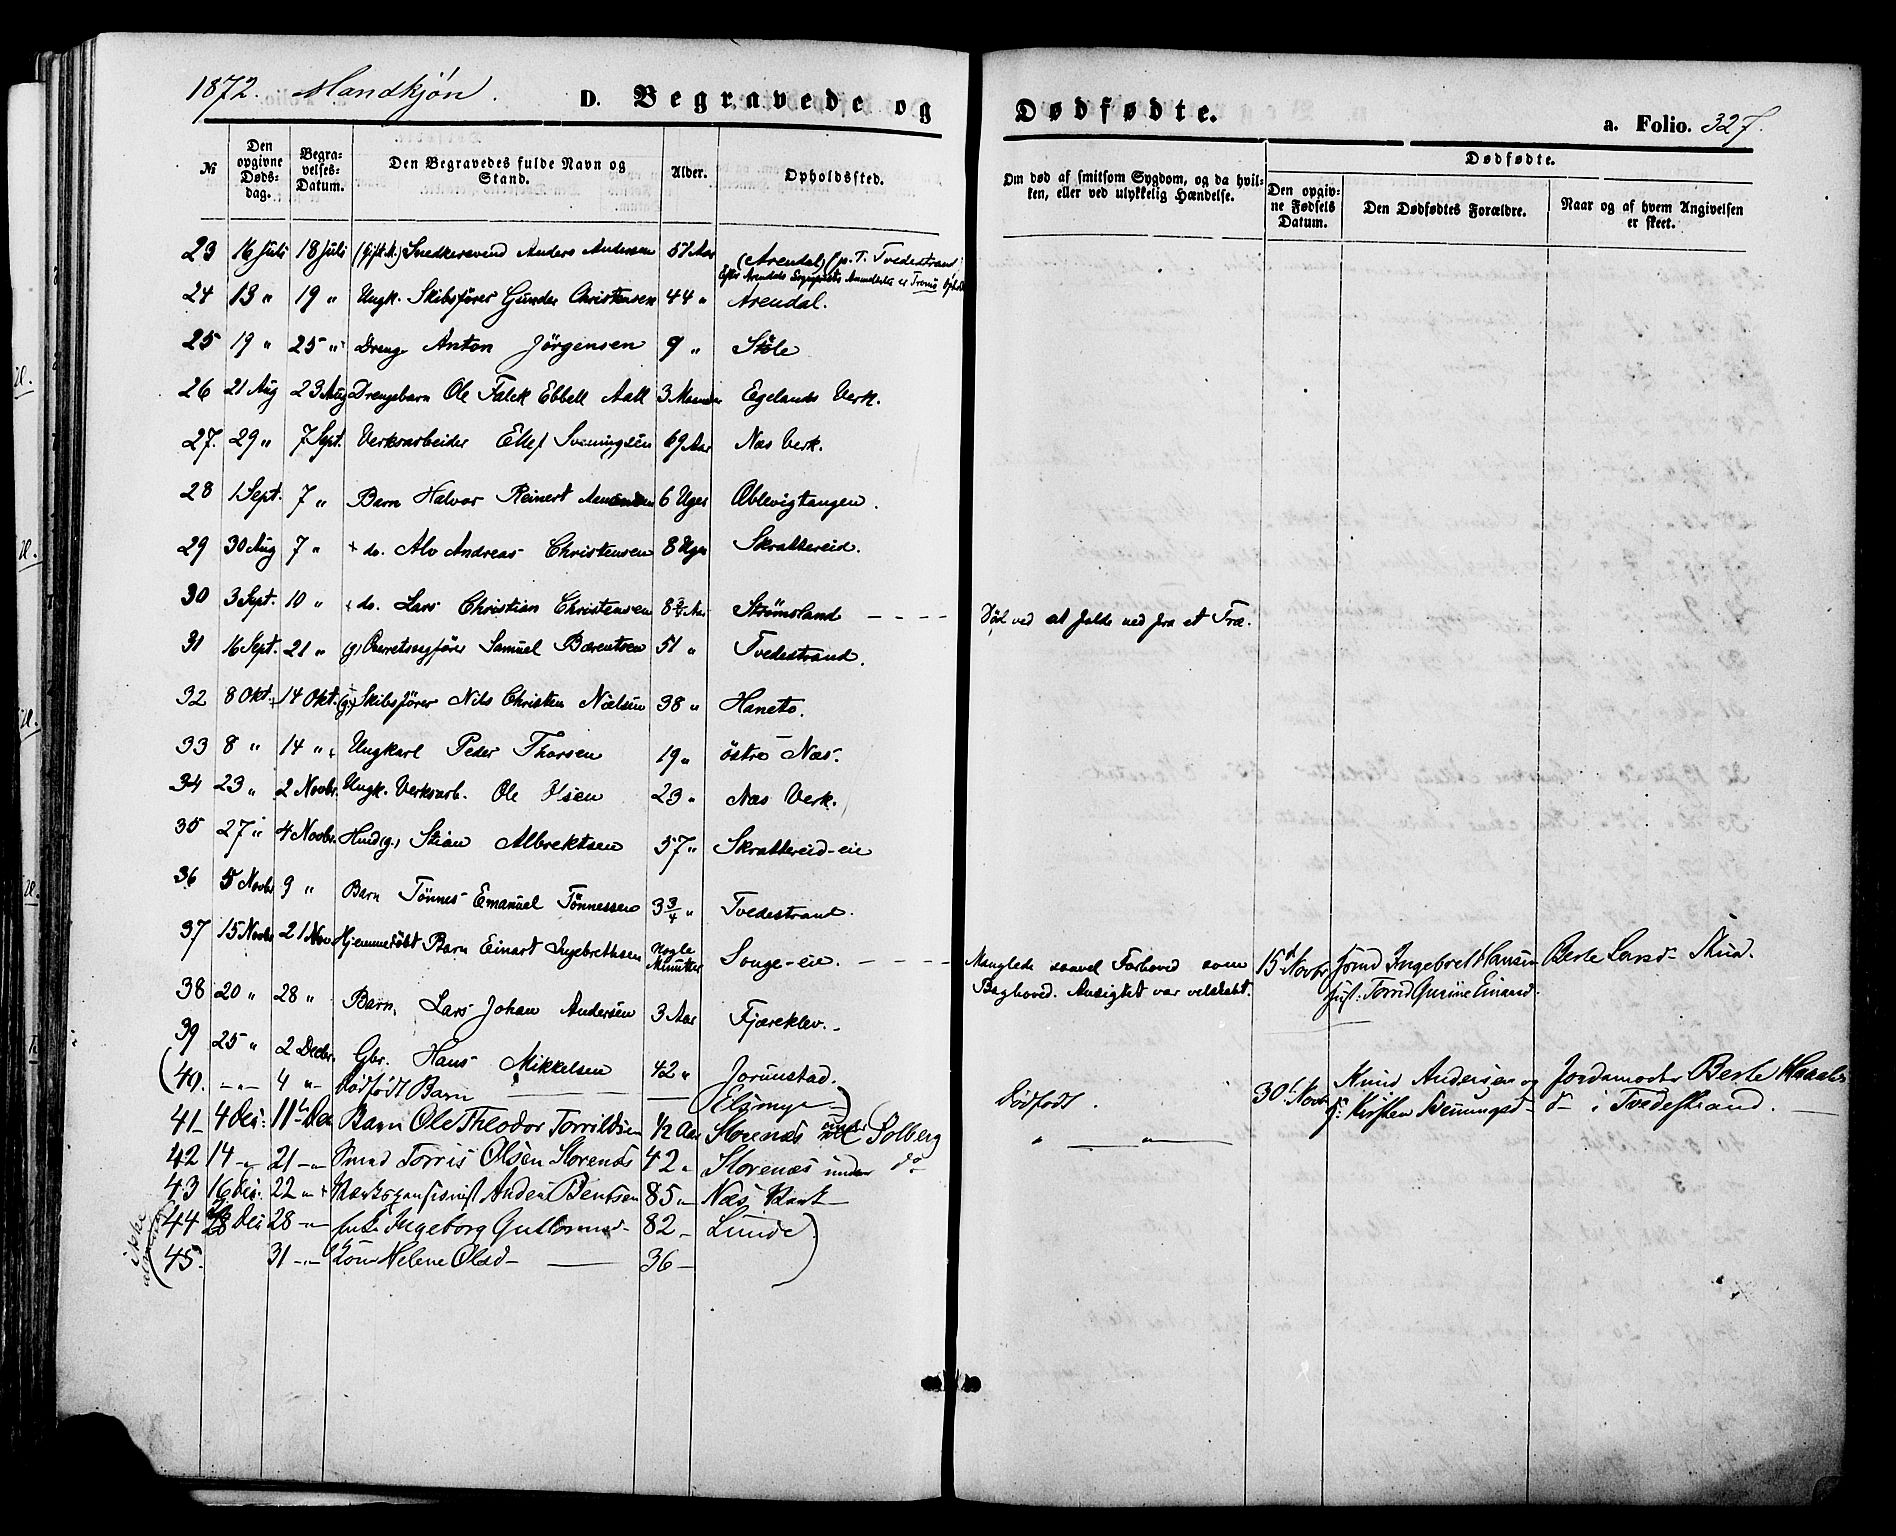 1872. Mandkjøn. D. Begravede og Dødfødte. a. Folio. 327.
№ Den opgivne Dødsdag. Begravelses-Datum. Den Begravedes fulde Navn og Stand. Alder. Opholdssted. Om død af smitsom Sygdom, og da hvilken, eller ved ulykkelig Hændelse. Dødfødte. Den opgivne Fødsels Datum. Den Dødfødtes Forældre. Naar og af hvem Angivelsen er skeet.
23 16 Juli 18 Juli (Gift M.) Snedkersvend Anders Andersen 57 Aar (Arendal) (p. T. Tvedestrand
24 13 " 19 " Ungk. Skibsfører Gunder Christensen 44 " Arendal.
25 19 " 25 " Dreng Anton Jörgensen 9 " Støle
26 21 Aug 23 Aug Drengebarn Ole Falck Ebbell Aall 3 Maaneder Egelands Verk.
27. 29 " 7 Sept. Verksarbeider Ellef Svenningsen 69 Aar Næs Verk.
28 1 Sept. 7 " Barn Halvor Reinert 6 Uger Oblevigtangen.
29 30 Aug 7 " + do. Alv Andreas Christensen 8 Uger Skrattereid.
30 3 Sept. 10 " + do. Lars Christian Christensen 8 3/4 Aar Strømsland - - - - Død ved at falde ned fra et Træ.
31 16 Sept. 21 " (g) Overretssagfører Samuel Bærentsen 51 " Tvedestrand.
32 8 Okt. 14 Okt. (g.) Skibsfører Nils Christen Nielsen 38 " Haneto.
33 8 " 14 " Ungkarl Peder Thorsen 19 " östre Næs.
34 23 " 2 Novbr. Ungk. Verksarb. Ole Olsen 23 " Næs Verk.
35 27 " 4 Novbr. Husm(g.) Stian Albrektsen 57 " Skrattereid-eie
36 5 Novbr 9 " Barn Tönnes Emanuel Tönnessen 3 3/4 " Tvedestrand.
37 15 Novbr 21 Nov. Hjemmedöbt Barn Einart Ingebrethsen Nogle Minutter Songe-eie. - - - - Manglede saavel Forhoved som Baghoved. Ansigtet var velskabt. 15d Novbr Ingebret Hansen Berte Land
38 20 " 28 " Barn, Lars Johan Andersen 3 Aar Fjæreklev.
39 25 " 2 Decbr. Gbr. Hans Mikkelsen 42 " Jorunstad.
(40. - " - 4 " - Dødfødt Barn Elsmyr) Dödfödt. 30t Novbr Knud Andersen og Kirsten Svenningsd Jordemoder Berte i Tvedestrand.
41 - 4 Des: 11te Dec Barn Ole Theodor Torrildsen 1/2 Aar Storenæs under Solberg " "
42 14 - " 21 - " Torris Olsen Storenæs 42 " Storenæs under do
43 16 Des: 22 - " + Anders Bentsen 85 - " Næs Værk -
ikke
(44 18 Des 28 - " Ingeborg Guttormsd - 82 - Lunde)
(45. 31 - " Kone Helene Olsd - 36 -